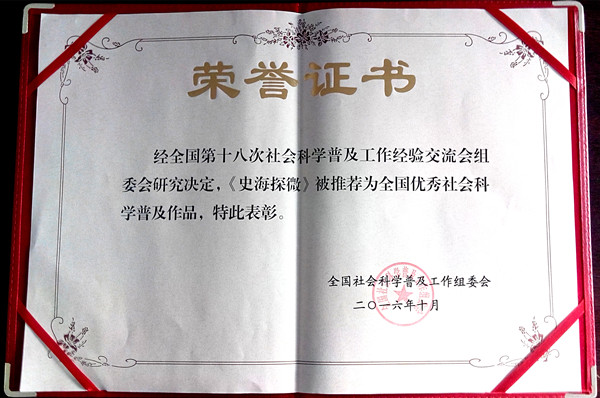 荣誉证书
经全国第十八次社会科学普及工作经验交流会组
委会研究决定，《史海探微》被推荐为全国优秀社会科
学普及作品，特此表彰。
全国社会科学普及工作组委会
二〇一六年十月